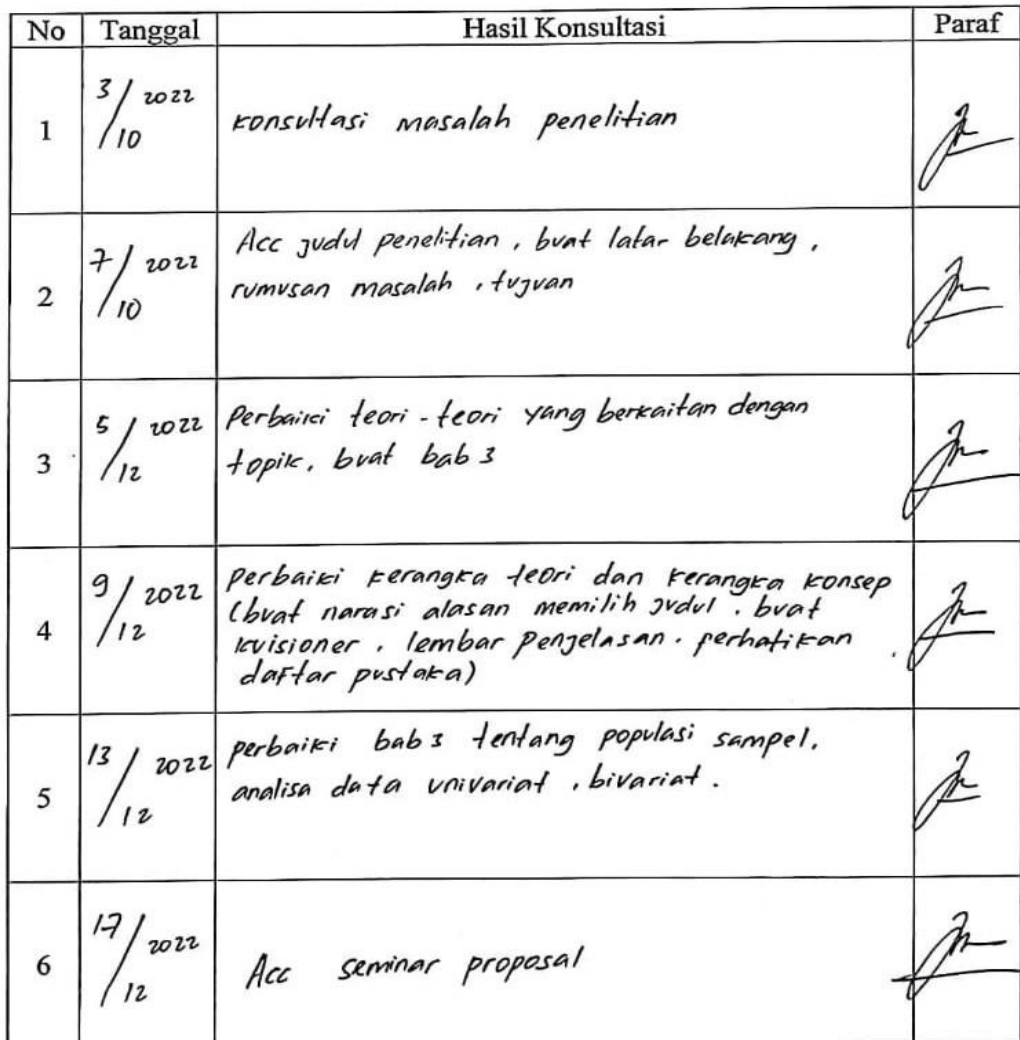 No Tanggal Hasil Konsultasi Paraf
1 3/10 2022 konsultasi masalah penelitian
2 7/10 2022 Acc judul penelitian, buat latar belakang,
rumusan masalah, tujuan
3 5/12 2022 Perbaiki teori-teori yang berkaitan dengan
topik, buat bab 3
4 9/12 2022 Perbaiki kerangka teori dan kerangka konsep
(buat narasi alasan memilih judul, buat
kuisioner, lembar penjelasan, perhatikan
daftar pustaka)
5 13/12 2022 perbaiki bab 3 tentang populasi sampel,
analisa data univariat, bivariat.
6 17/12 2022 Acc seminar proposal